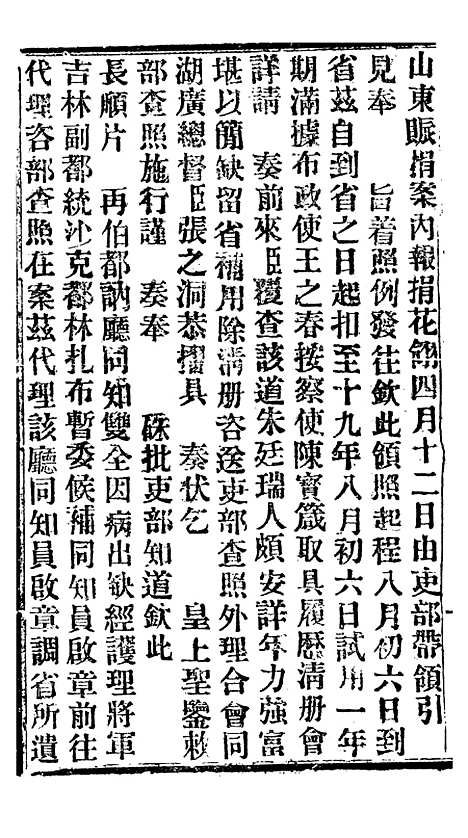 山東賑捐案內報捐花翎四月十二日由吏部帶領引
見奉　旨着照例發往欽此領照起程八月初六日到
省茲自到省之日起扣至十九年八月初六日試用一年
期滿據布政使王之春按察使陳寶箴取具履歷清册會
詳請　奏前來臣覆查該道朱廷瑞人頗安詳年力強富
堪以簡缺留省補用除清册咨送吏部查照外理合會同
湖廣總督臣張之洞恭摺具　奏伏乞　皇上聖鑒敕
部查照施行謹　奏奉　硃批吏部知道欽此
長順片　再伯都訥廳同知雙全因病出缺經護理將軍
吉林副都統沙克都林扎布暫委候補同知員啟章前往
代理咨部查照在案茲代理該廳同知員啟章調省所遺